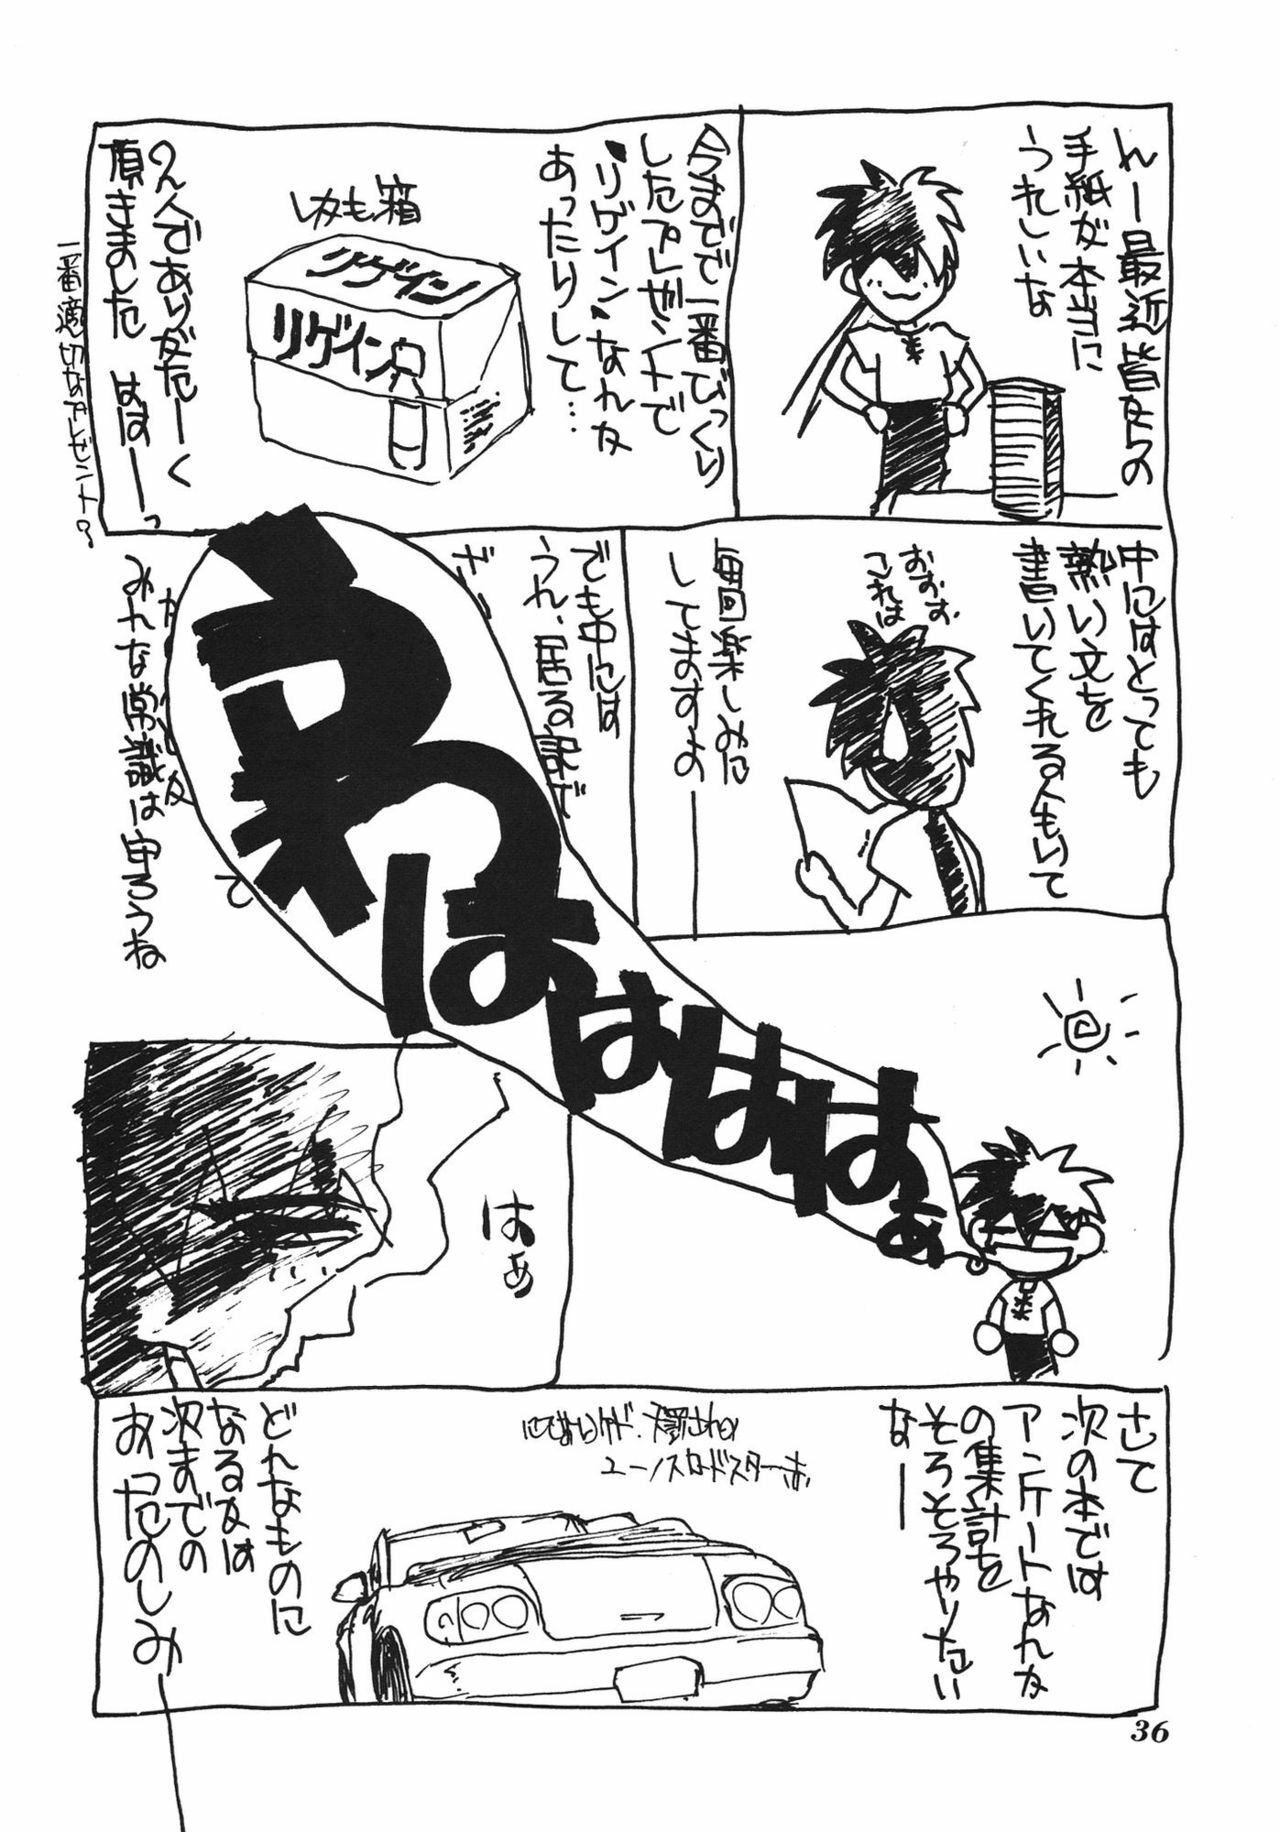 んー最近皆さんの
手紙が本当に
うれしいな
今までで一番びっくり
したプレゼントで
"リゲイン"なんか
あったりして…
しかも箱
リゲイン
リゲイン
のんでありがたーく
頂きました はは――っ
一番適切なプレゼント?
中にはとっても
熱い文を
書いてくれる人もいて
おおお
これは
毎回楽しみに
してますよの――
でも中には
うれ、居る訳で
みんな常識は守ろうね
うわはははははぁ
はぁ
さて
次の本では
アンケートなんか
の集計を
そろそろやりたい
なー
ユーノスロードスター
どんなものに
なるかは
次までの
おったのしみ――
36